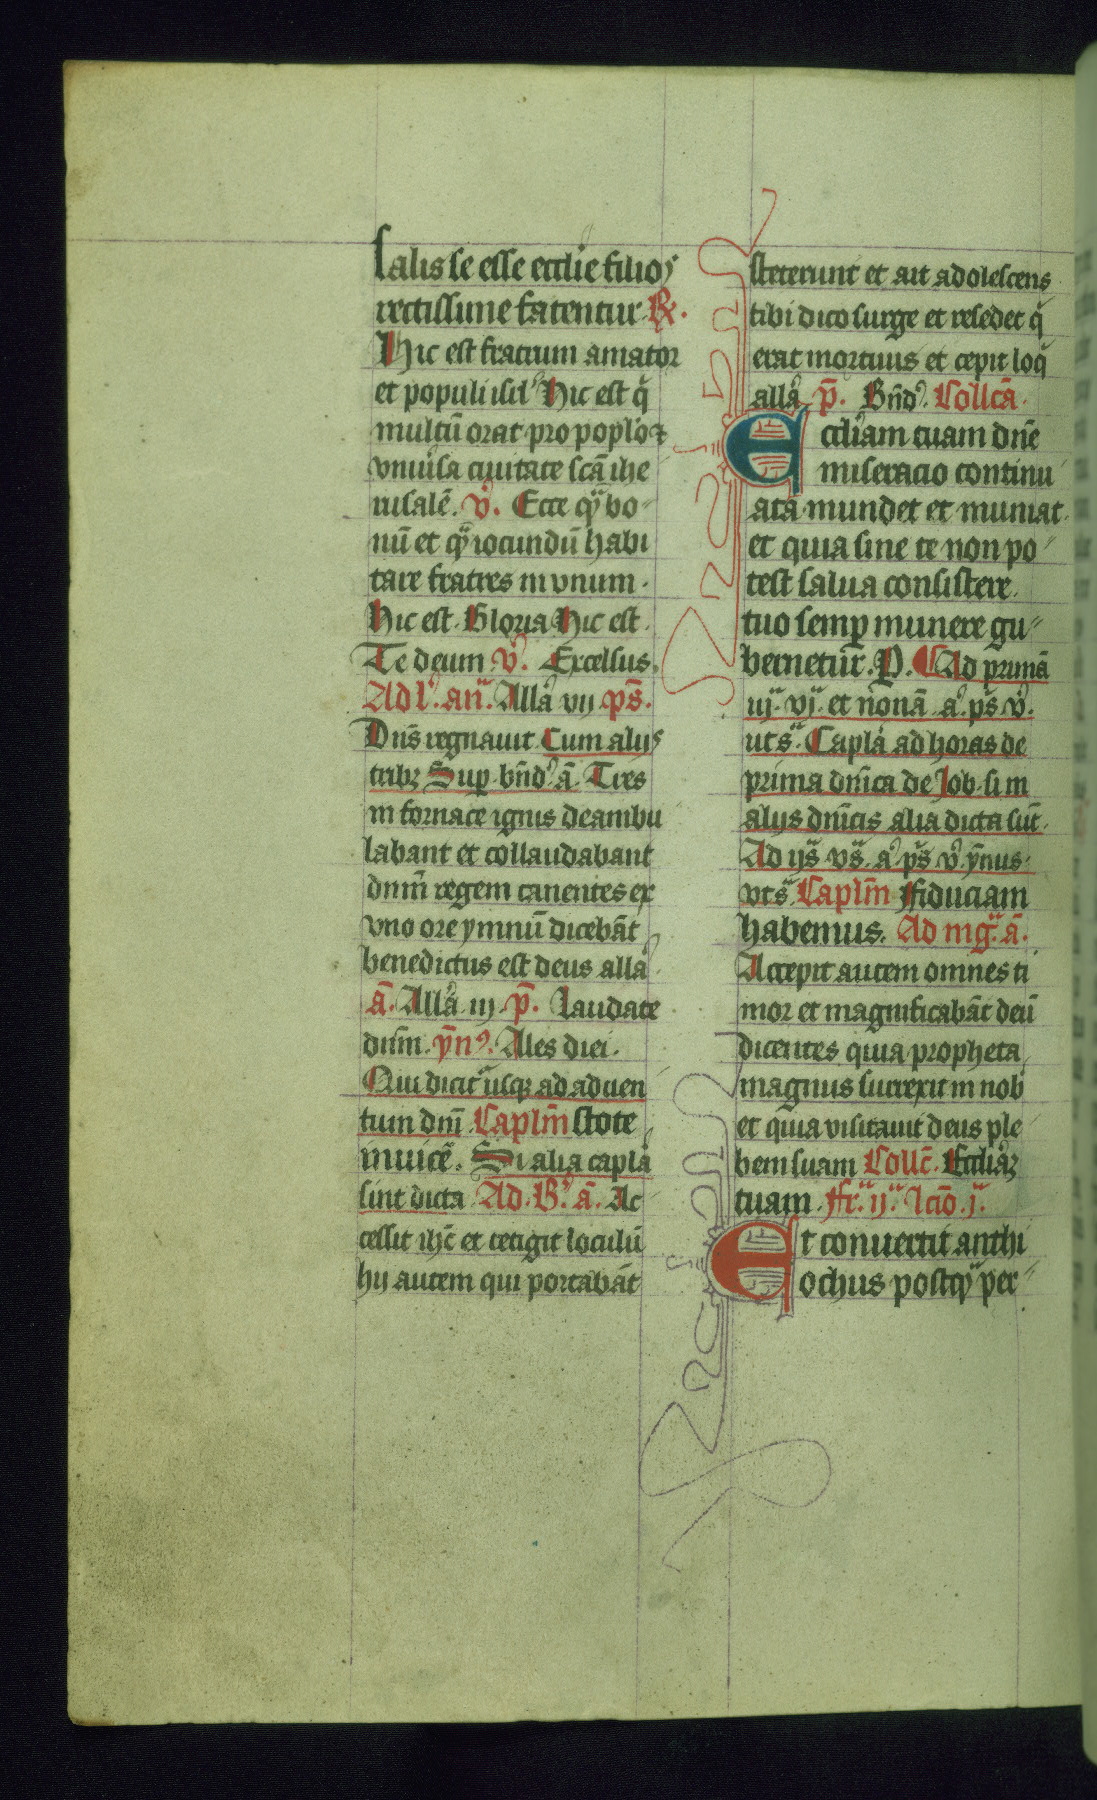 salis se esse ecclie filios
rectissime fatentur R̷.
Hic est fratrum amator
et populi isrl' Hic est q̇
multū orat pro poplo ⁊
vniu'sa ciuitate scā ihe
rusalē. v̊. Ecce qͣ bo
nū et qͣ iocundū habi
tare fratres in vnum.
Hic est. Gloria Hic est.
Te deum. v̊. Excelsus.
Ad l'. an̄. Alla vij ps̄.
Dn̄s regnauit Cum alijs
tribꝫ Sup bn̄d' ā. Tres
in fornace ignis deambu
labant et collaudabant
dnm̄ regem canentes ex
vno ore ymnū dicebāt
benedictus est deus alla
ā. Alla iij. p̄. Laudate
dn̄m. ȳn⁹. Ales diei.
Qui dicit' usqꝫ ad aduen
tum dnī Caplm̄ Estote
inuicē. Si alia capla
sint dicta Ad. B'. ā. Ac
cessit ihc̄ et tetigit loculū
hij autem qui portabāt
steterunt et ait adolescens
tibi dico surge et resedet q̇
erat mortuus et cepit loq̇
alla. p̄. Bn̄d'. Collcā.
Eccliam tuam dn̄e
miseracio continu
ata mundet et muniat
et quia sine te non po
test salua consistere
tuo semp munere gu
bernetur. P. Ad primā
iij. vj. et nonā a'. ps̄. v̊.
uts̄. Capla ad horas de
prima dn̄ica de Job. si in
alijs dn̄icis alia dicta sūt.
Ad ijs̄ vs̄. a'. ps̄ v̊. ȳnus.
vts̄. Caplm̄ Fiduciam
habemus. Ad mḡ. ā.
Accepit autem omnes ti
mor et magnificabāt deū
dicentes quia propheta
magnus surrexit in nob'
et quia visitauit deus ple
bem suam Collc̄. Eccliaꝫ
tuam. Fr̄. ij. lcīo. j.
Et conuertit anthi
ochus postqͣ per